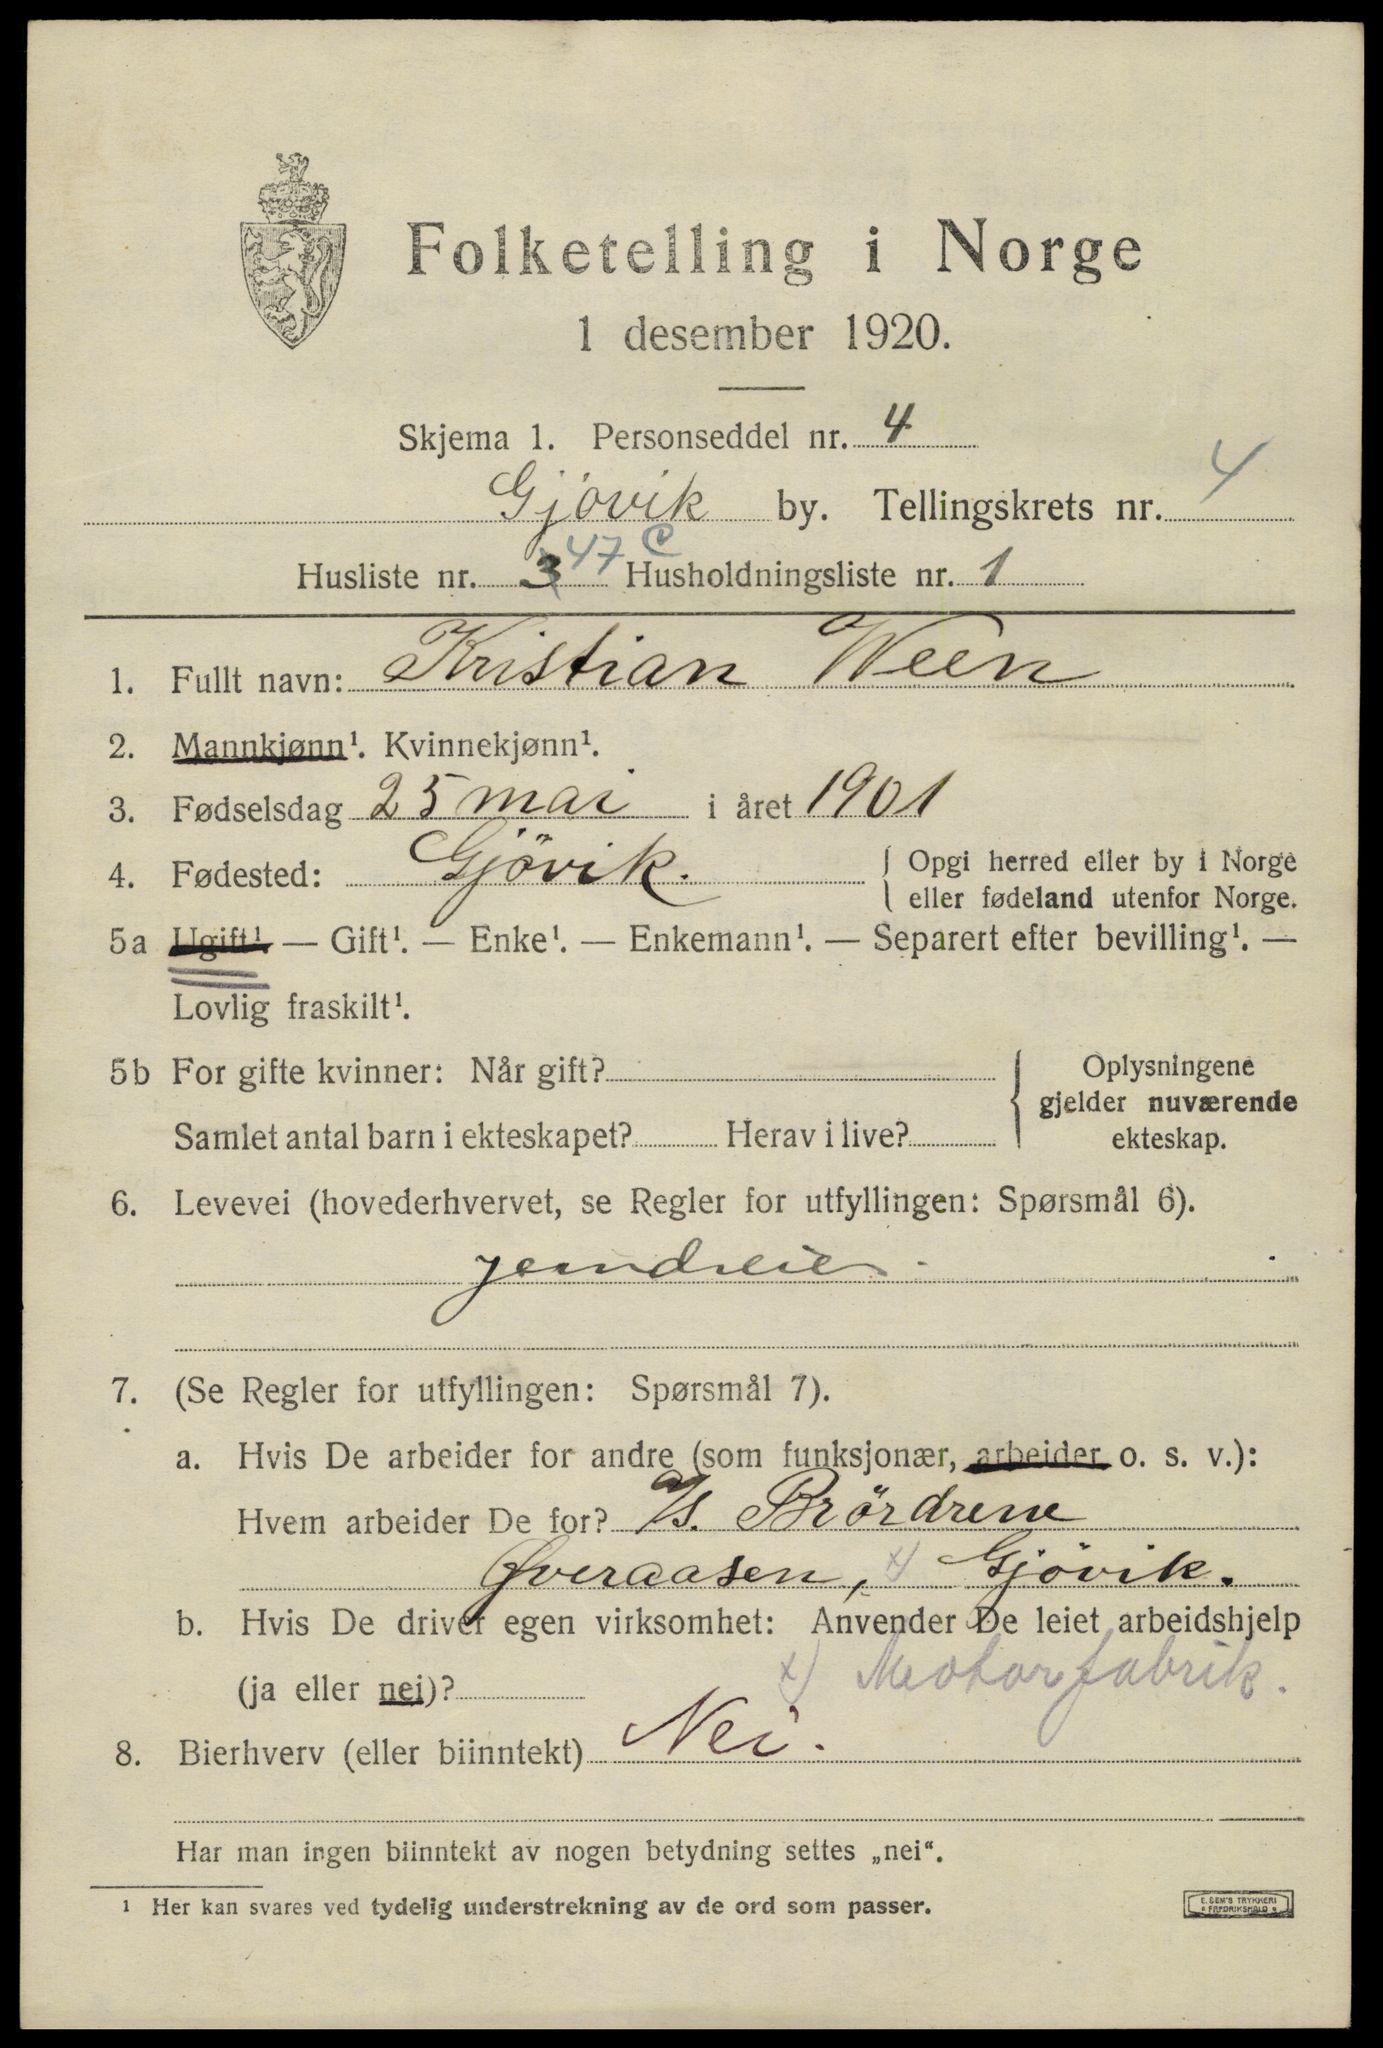 Folketelling i Norge
1 desember 1920.
Skjema 1. Personseddel nr. 4
Gjövik by. Tellingskrets nr. 4
Husliste nr. 3 47 c Husholdningsliste nr. 1
1. Fullt navn: Kristian Ween
2. Mannkjønn¹. Kvinnekjønn¹.
3. Fødselsdag 25 mai i året 1901
4. Fødested: Gjövik. { Opgi herred eller by i Norge
eller fødeland utenfor Norge.
5a Ugift¹. — Gift¹. — Enke¹. — Enkemann¹. — Separert efter bevilling¹. —
Lovlig fraskilt¹.
5b For gifte kvinner: Når gift? { Oplysningene
gjelder nuværende
Samlet antal barn i ekteskapet? Herav i live? ekteskap.
6. Levevei (hovederhvervet, se Regler for utfyllingen: Spørsmål 6).
jerndreier.
7. (Se Regler for utfyllingen: Spørsmål 7).
a. Hvis De arbeider for andre (som funksjonær, arbeider o. s. v.):
Hvem arbeider De for? A/s. Brördrene
Øveraasen, x) Gjövik.
b. Hvis De driver egen virksomhet: Anvender De leiet arbeidshjelp
(ja eller nei)? x) Motorfabrik.
8. Bierhverv (eller biinntekt) Nei.
Har man ingen biinntekt av nogen betydning settes „nei“.
¹ Her kan svares ved tydelig understrekning av de ord som passer.
E. SEM'S TRYKKERI
FREDRIKSHALD